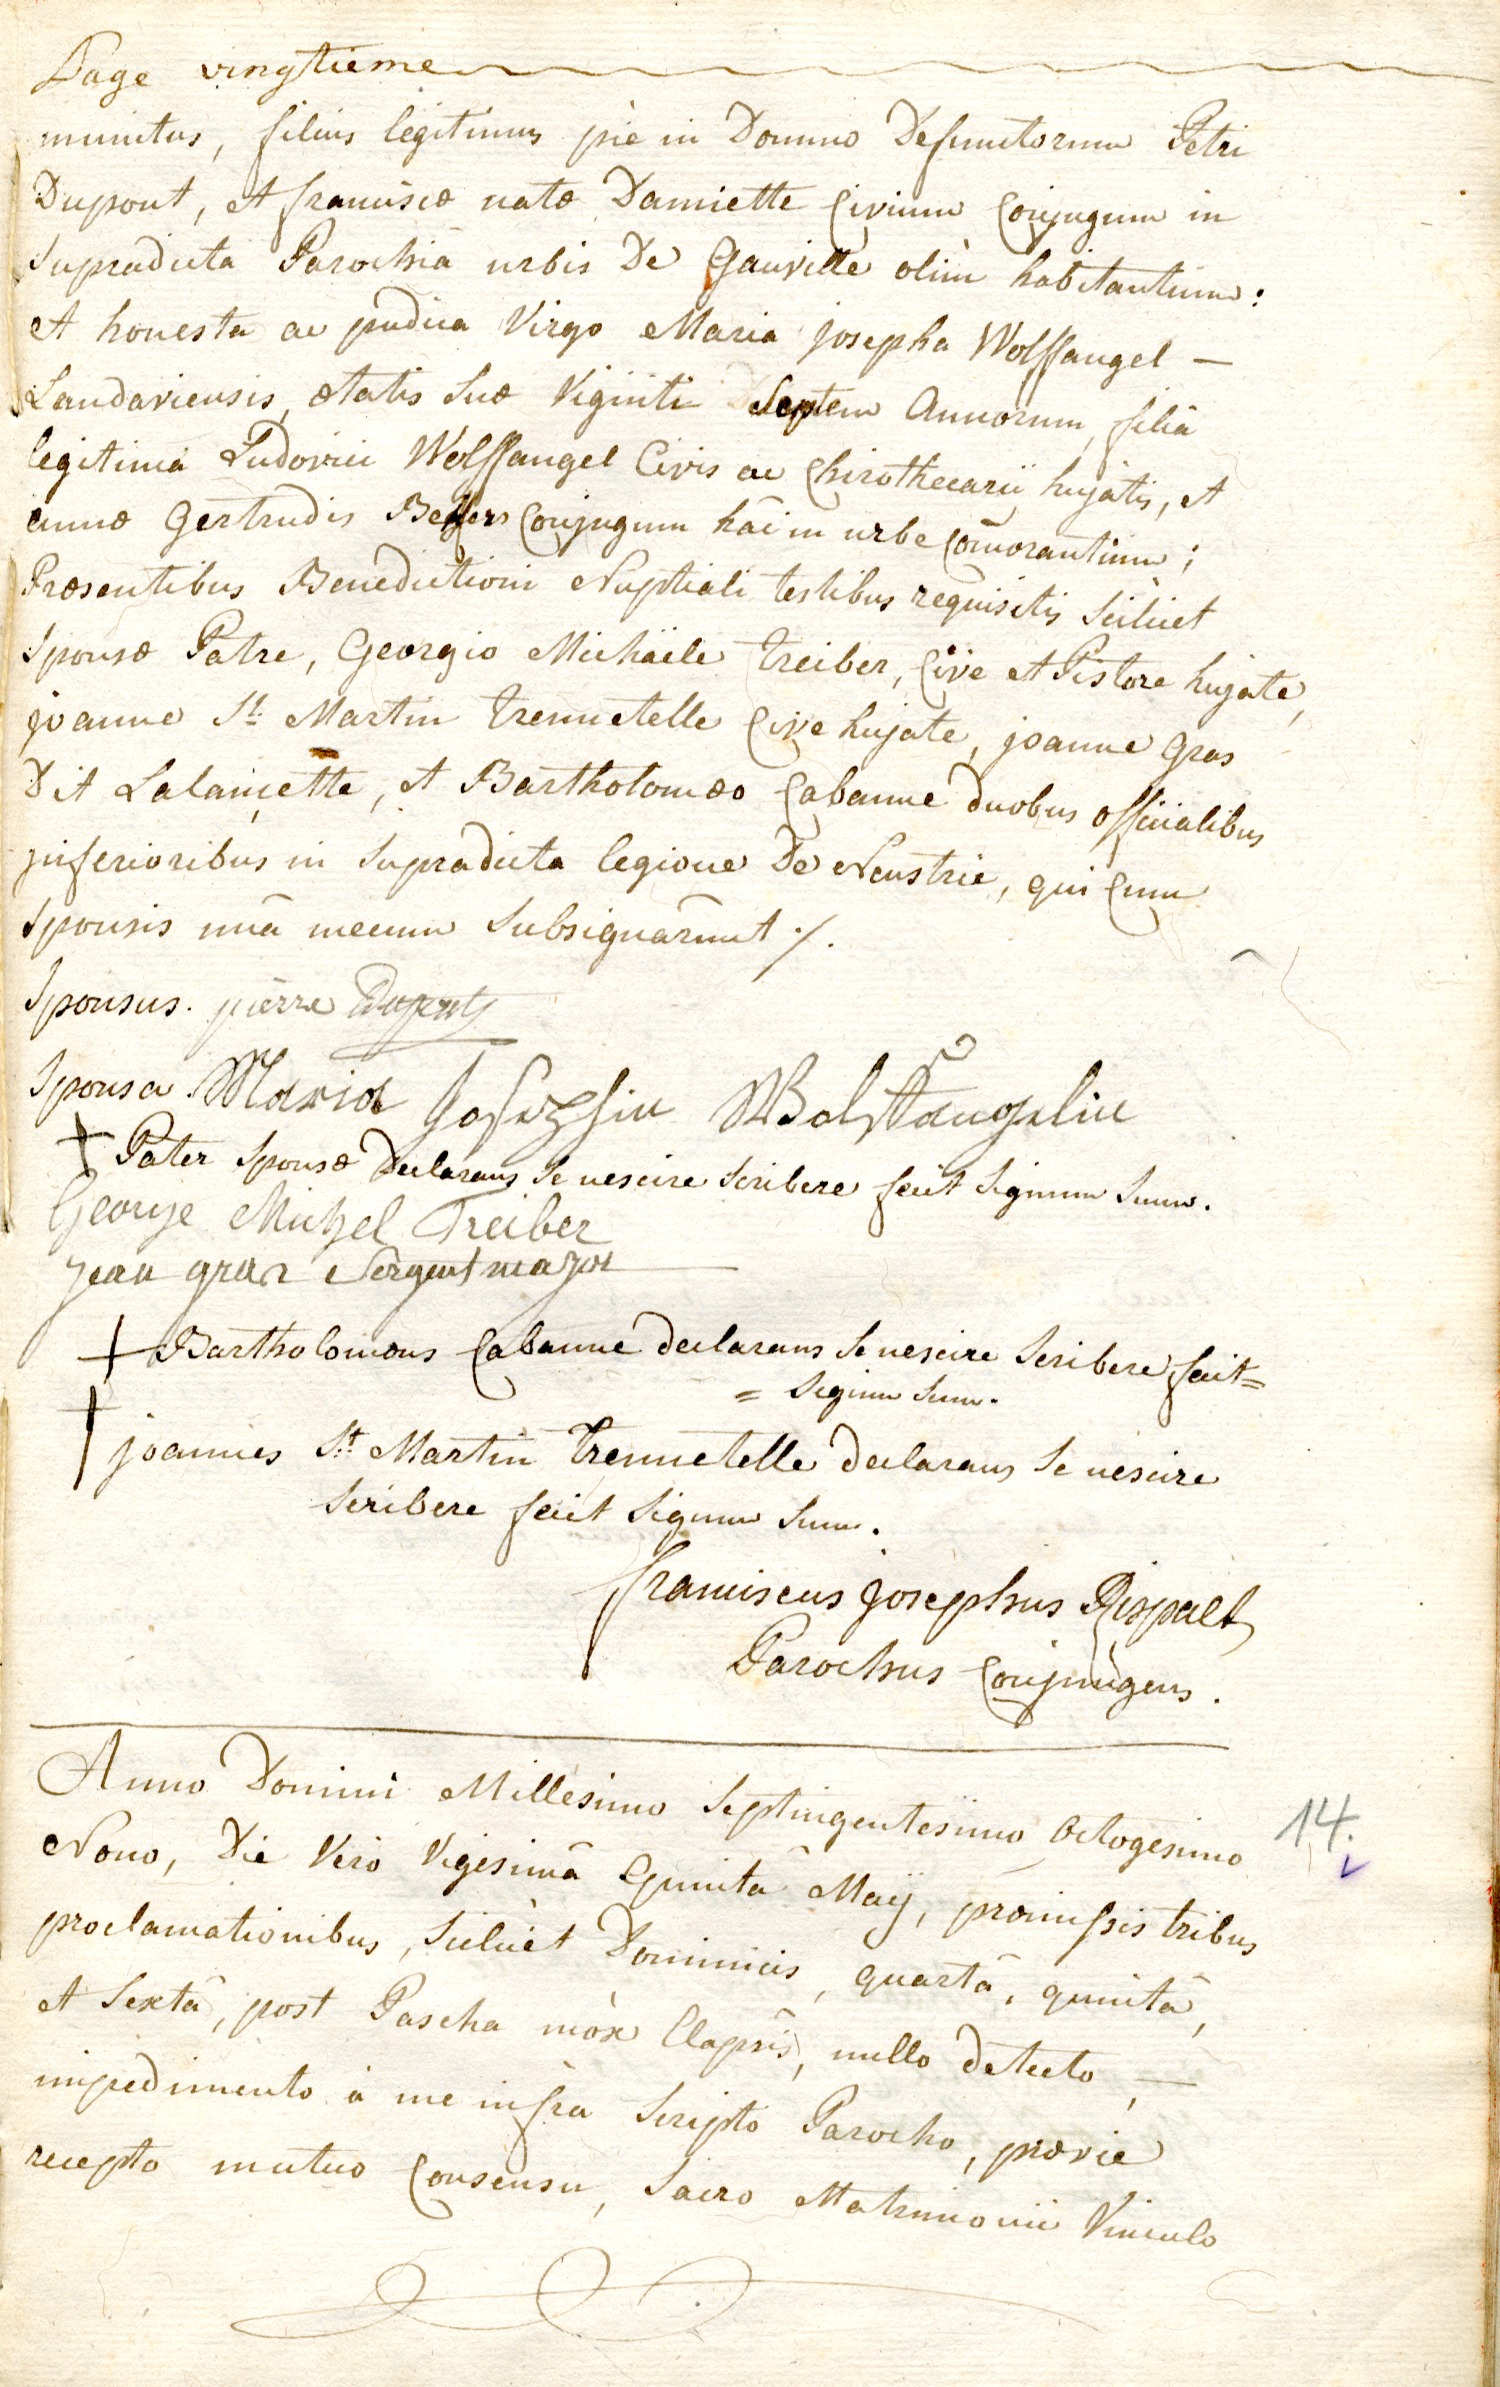 Page vingtieme
munitus, filius legitimus piè in Domino Defunctorum Petri
Dupont, et franciscæ natæ Damiette Civium Conjugum in
supradicta Parochiâ urbis De Gauville olim habitantium:
et honesta ac pudica Virgo Maria josepha Wolffangel —
Landaviensis, ætatis suæ Viginti Septem annorum, filia
legitima Ludovici Wolffangel Civis ac Chirothecarii hujatis, et
annæ Gertrudis Conjugum hâc in urbe Com̄orantium;
Præsentibus Benedictioni Nuptiali testibus requisitis scilicet
sponsæ Patre, Georgio Michäele Treiber, Cive et Pistore hujate,
joanne St. Martin Trennetelle Cive hujate, joanne Gras
Dit Lalancette, et Bartholomæo Cabanne duobus officialibus
inferioribus in supradicta legione De Neustrie, qui Cum
sponsis unâ mecum subsignârunt ./.
Sponsus. pierre Dupont
Sponsa Maria Josephin Wolffangelin
† Pater sponsæ Declarans se nescire scribere fecit signum suum.
George Michel Treiber
jean gras Sergent major
† Bartholomæus Cabanne declarans se nescire scribere fecit=
= signum suum.
† joannes St. Martin Trennetelle declarans se nescire
scribere fecit signum suum.
franciscus josephus Rispalt
Parochus Conjungens.
Anno Domini Millesimo Septingentesimo Octogesimo
Nono, Die Vero Vigesimâ Quintâ Maij, præmissis tribus
proclamationibus, scilicet Dominicis, quartâ, quintâ,
et Sextâ, post Pascha mòx Elapsis, nullo detecto, —
impedimento à me infra scripto Parocho, prævie
recepto mutuo Consensu, sacro Matrimonii Vinculo
14.